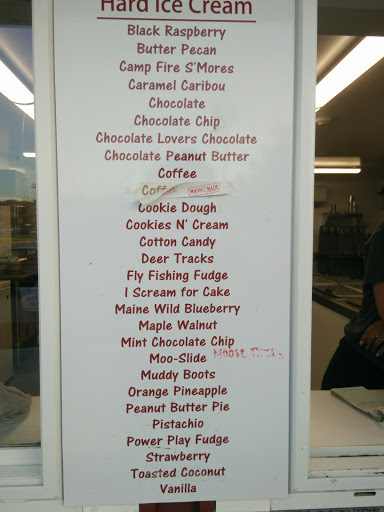 Hard Ice Cream
Black Raspberry
Butter Pecan
Camp Fire S'Mores
Caramel Caribou
Chocolate
Chocolate Chip
Chocolate Lovers Chocolate
Chocolate Peanut Butter
Coffee
Cookie Dough
Cookies N' Cream
Cotton Candy
Deer Tracks
Fly Fishing Fudge
I Scream for Cake
Maine Wild Blueberry
Maple Walnut
Mint Chocolate Chip
Moo-Slide Moose Tracks
Muddy Boots
Orange Pineapple
Peanut Butter Pie
Pistachio
Power Play Fudge
Strawberry
Toasted Coconut
Vanilla